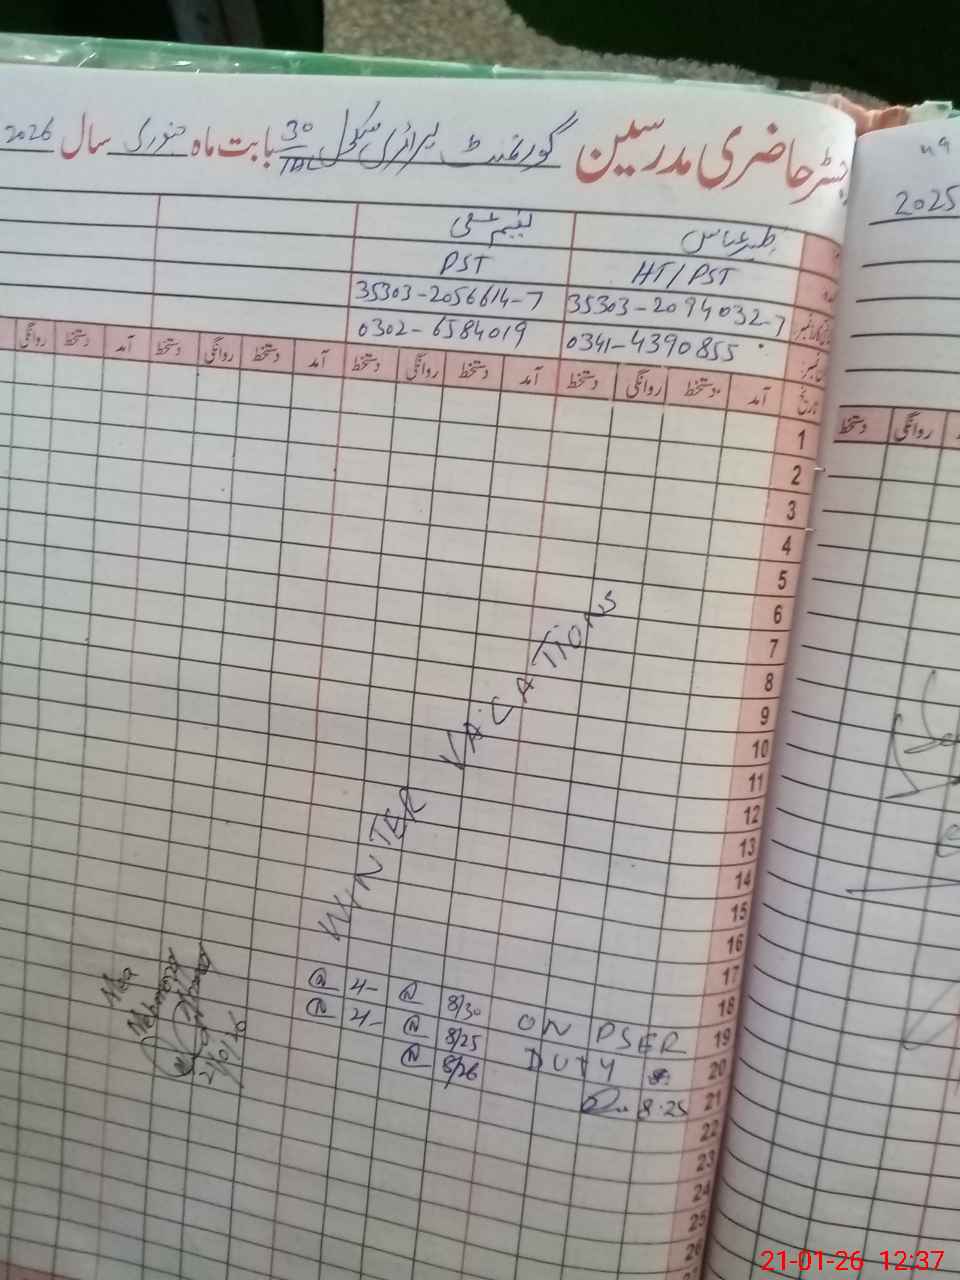 رجسٹر حاضری مدرسین گورنمنٹ پرائمری سکول 30/TDA بابت ماہ جنوری سال 2026
2025
ظہیر عباس
HT/PST PST
35303-2094032-7 35303-2056614-7
0341-4390855 0302-6584019
تاریخ آمد دستخط روانگی دستخط آمد دستخط روانگی دستخط آمد دستخط روانگی دستخط آمد دستخط روانگی
روانگی دستخط
1
2
3
4
5
6
7
8
9
10
11
12
13
14
15
16
17
18
19
20
21
22
23
24
25
26
WINTER VACATIONS
ON PSER
DUTY
8/30
8/25
8/26
8:25
21-01-26 12:37